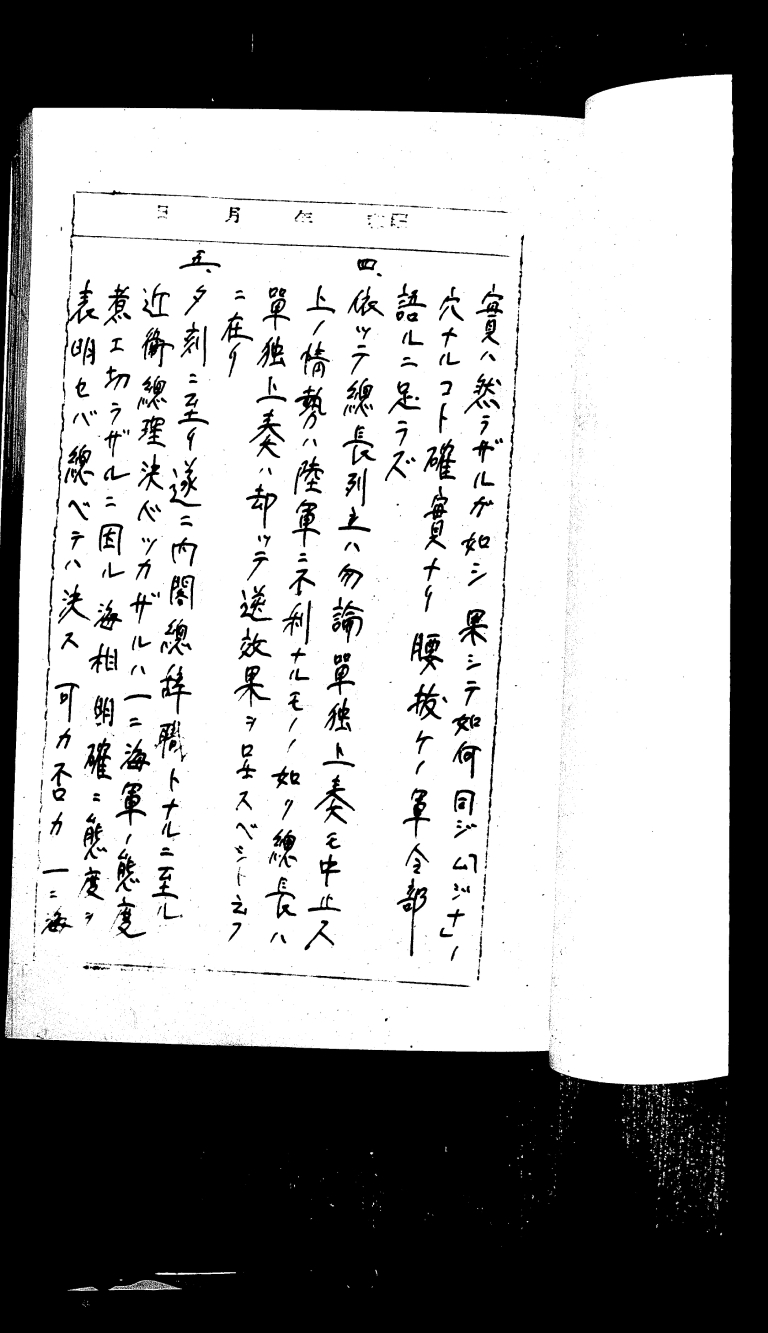 昭和　年　月　日
實ハ然ラザルガ如シ　果シテ如何　同ジ「ムジナ」ノ
穴ナルコト確實ナリ　腰抜ケノ軍令部
語ルニ足ラズ
四、依ッテ總長列立ハ勿論單独上奏モ中止ス
上ノ情勢ハ陸軍ニ不利ナルモノノ如ク總長ハ
單独上奏ハ却ッテ逆效果ヲ呈スベシト云フ
ニ在リ
五、夕刻ニ至リ遂ニ内閣總辞職トナルニ至ル
近衛總理決心ツカザルハ一ニ海軍ノ態度
煮エ切ラザルニ因ル　海相明確ニ態度ヲ
表明セバ總ベテハ決ス　可カ否カ　一ニ海